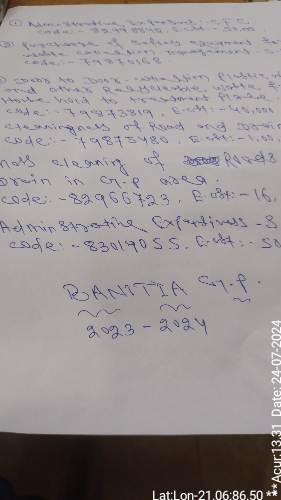 ① Administrative Expenses :- S.F.C.
code :- 82978898, E.cost :- 50,000
② purchase of Safety equipment for
code :- 79870168
③ Door to Door collection
and other Recyclable waste
House hold to treatment place
code :- 79873819, E.cost :- 45,000
cleaningness of Road and Drain
code :- 79875480, E.cost :- 1,00,
cleaning of Roads
Drain in G.P area.
code :- 82966723, E.cost :- 16,
Administrative Expenditives - S
code :- 83019055, E.cost :- 50
BANITIA G.P.
2023 - 2024
**Acur:13.31 Date: 24-07-2024
Lat:Lon-21.06:86.50